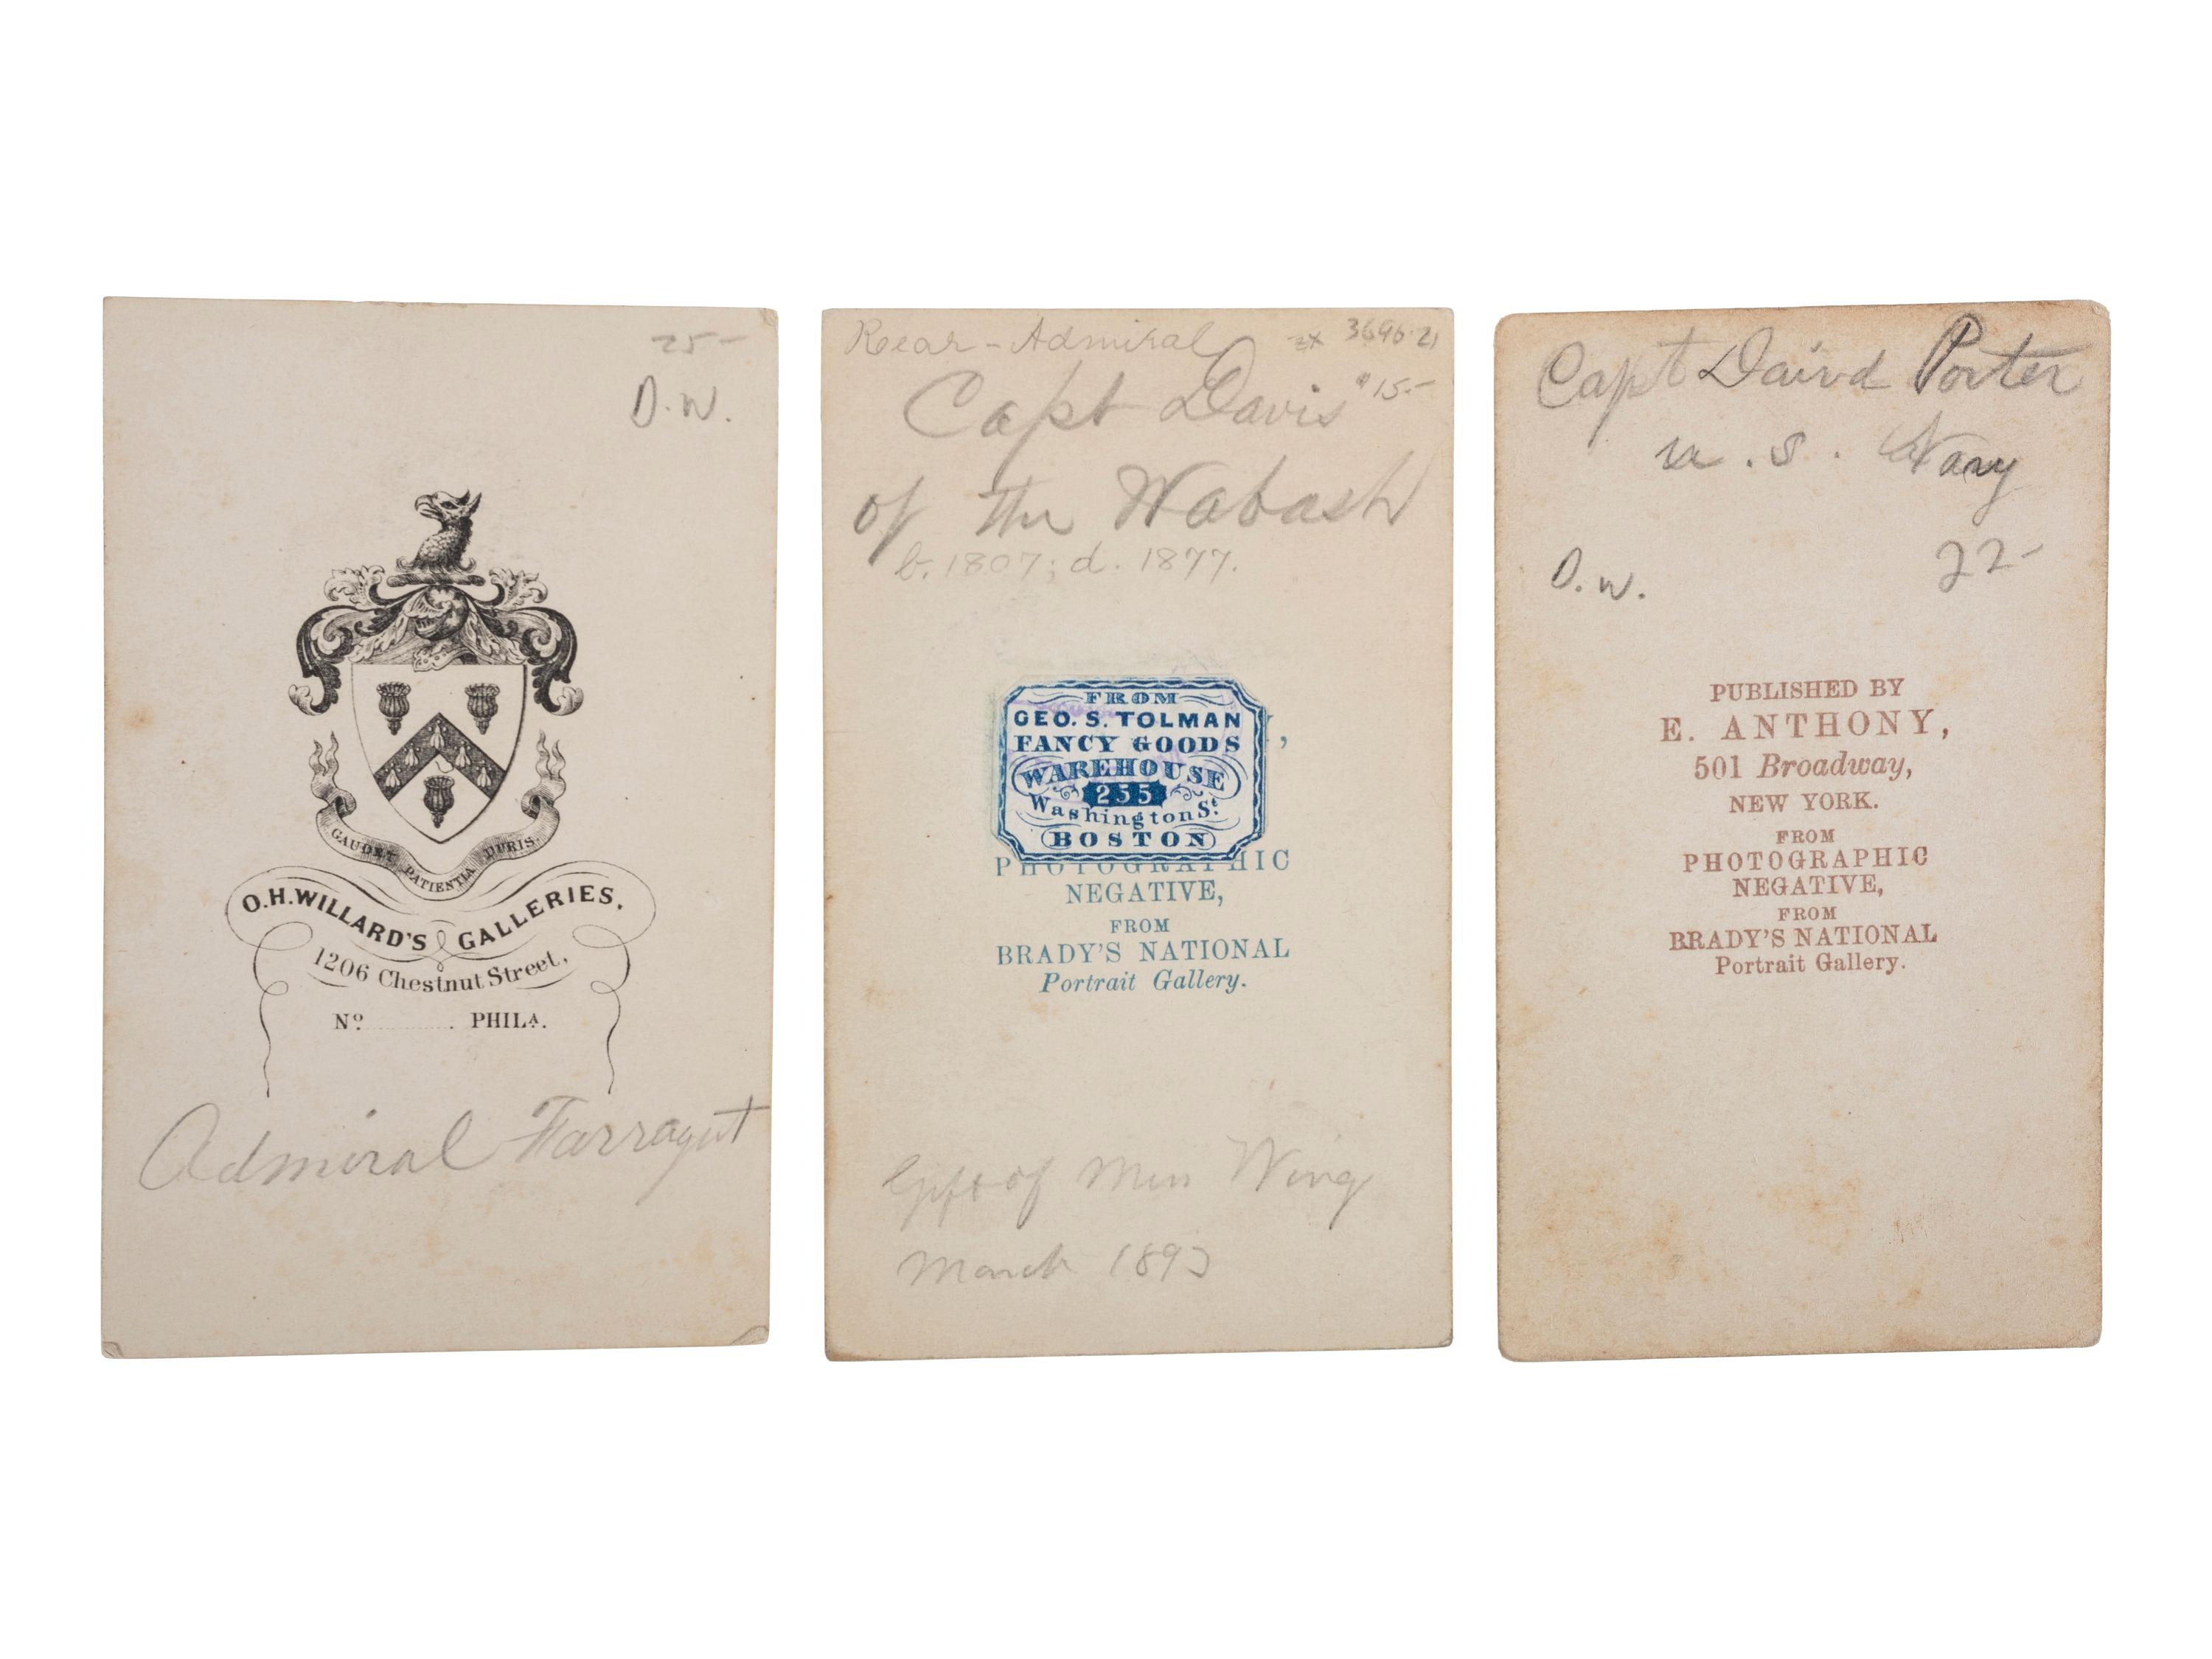 25-
O.W.
GAUDET PATIENTIA DURIS.
O.H. WILLARD'S GALLERIES,
1206 Chestnut Street,
No. PHILA.
Admiral Farragut
Rear-Admiral 3696.21
Capt Davis $15-
of the Wabash
b. 1807; d. 1877.
FROM
GEO. S. TOLMAN
FANCY GOODS
WAREHOUSE
255
Washington St.
BOSTON
PHOTOGRAPHIC
NEGATIVE,
FROM
BRADY'S NATIONAL
Portrait Gallery.
Gift of Miss Wing
March 1893
Capt Daivd Porter
u.s. Navy
22-
O.W.
PUBLISHED BY
E. ANTHONY,
501 Broadway,
NEW YORK.
FROM
PHOTOGRAPHIC
NEGATIVE,
FROM
BRADY'S NATIONAL
Portrait Gallery.